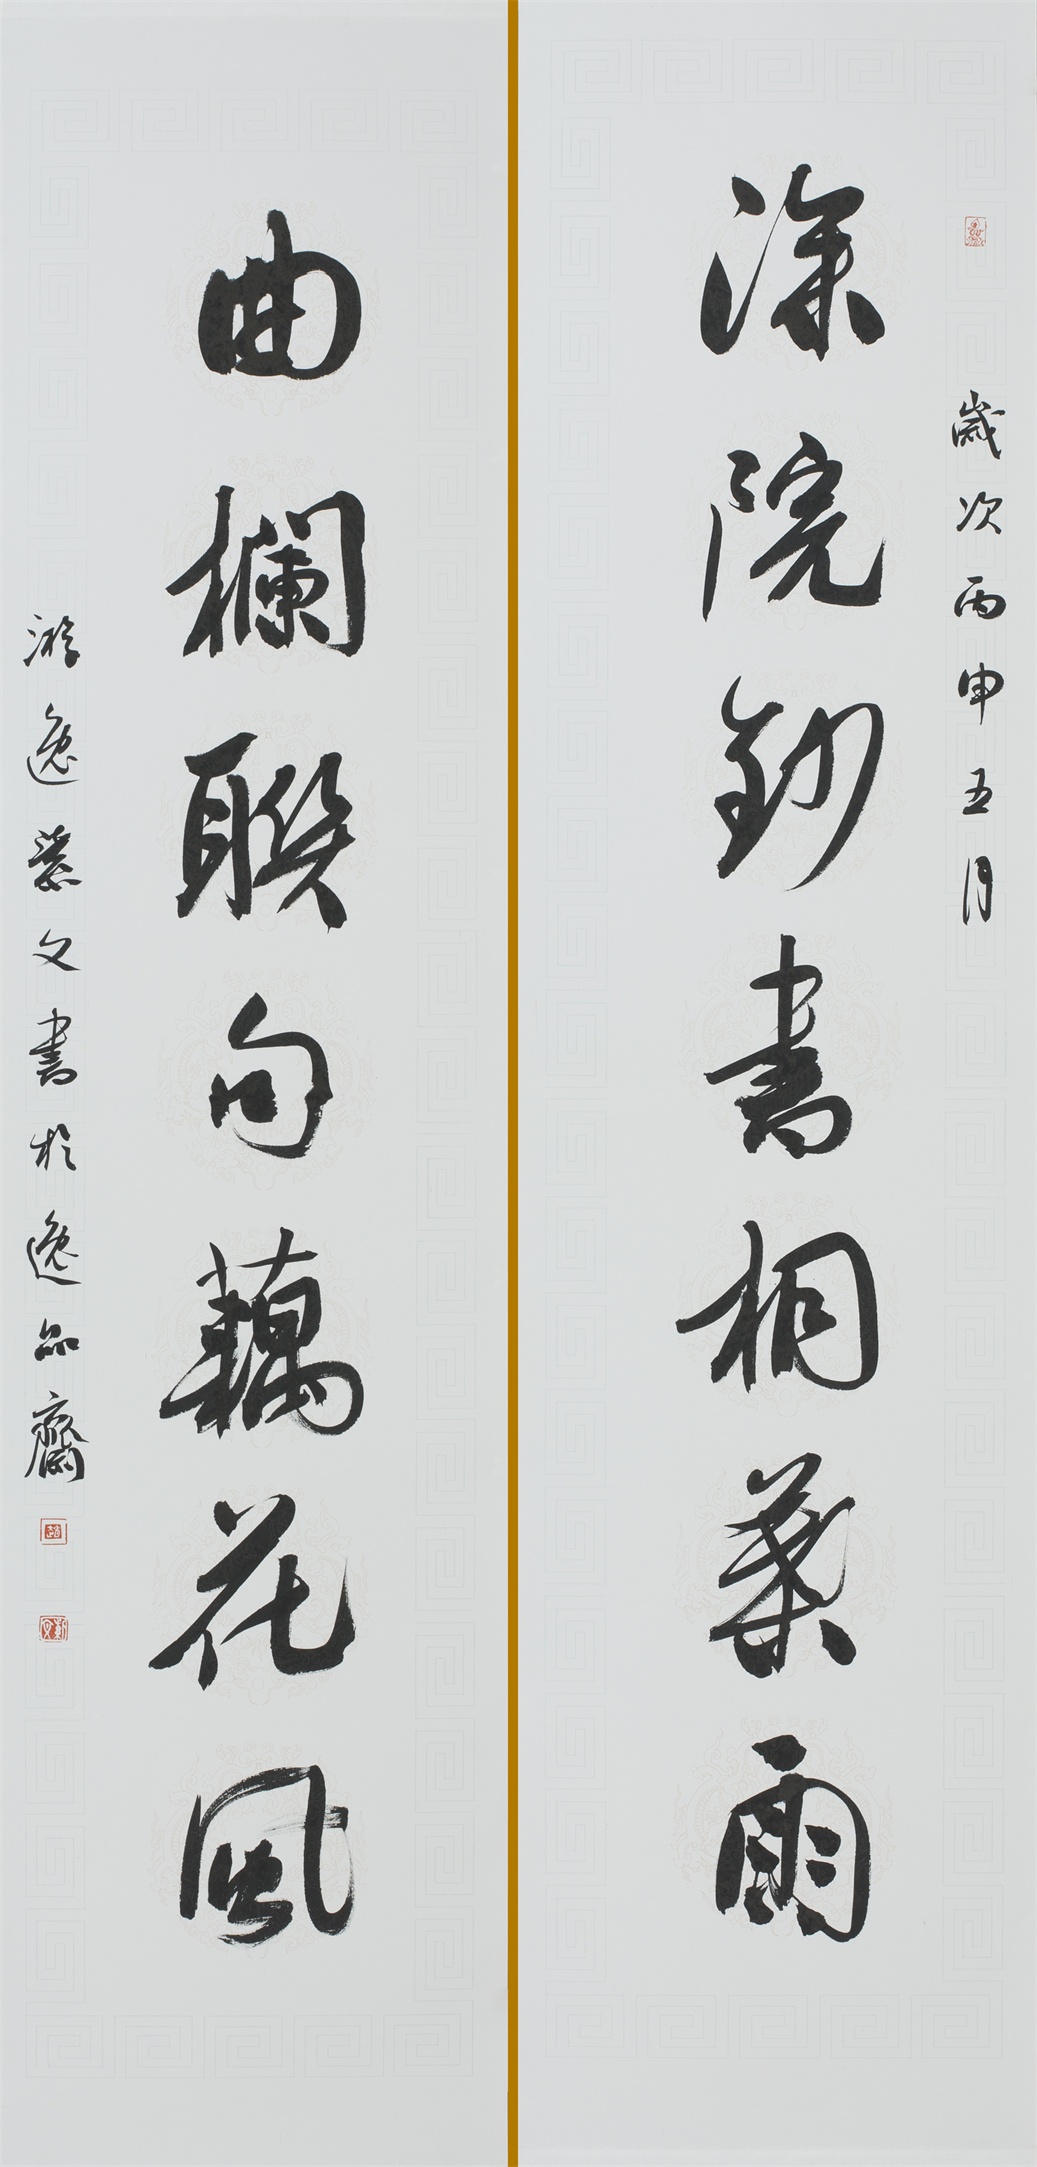 歲次丙申五月
深院鈔書桐葉雨
曲欄聯句藕花風
游逸崇文書於逸品齋